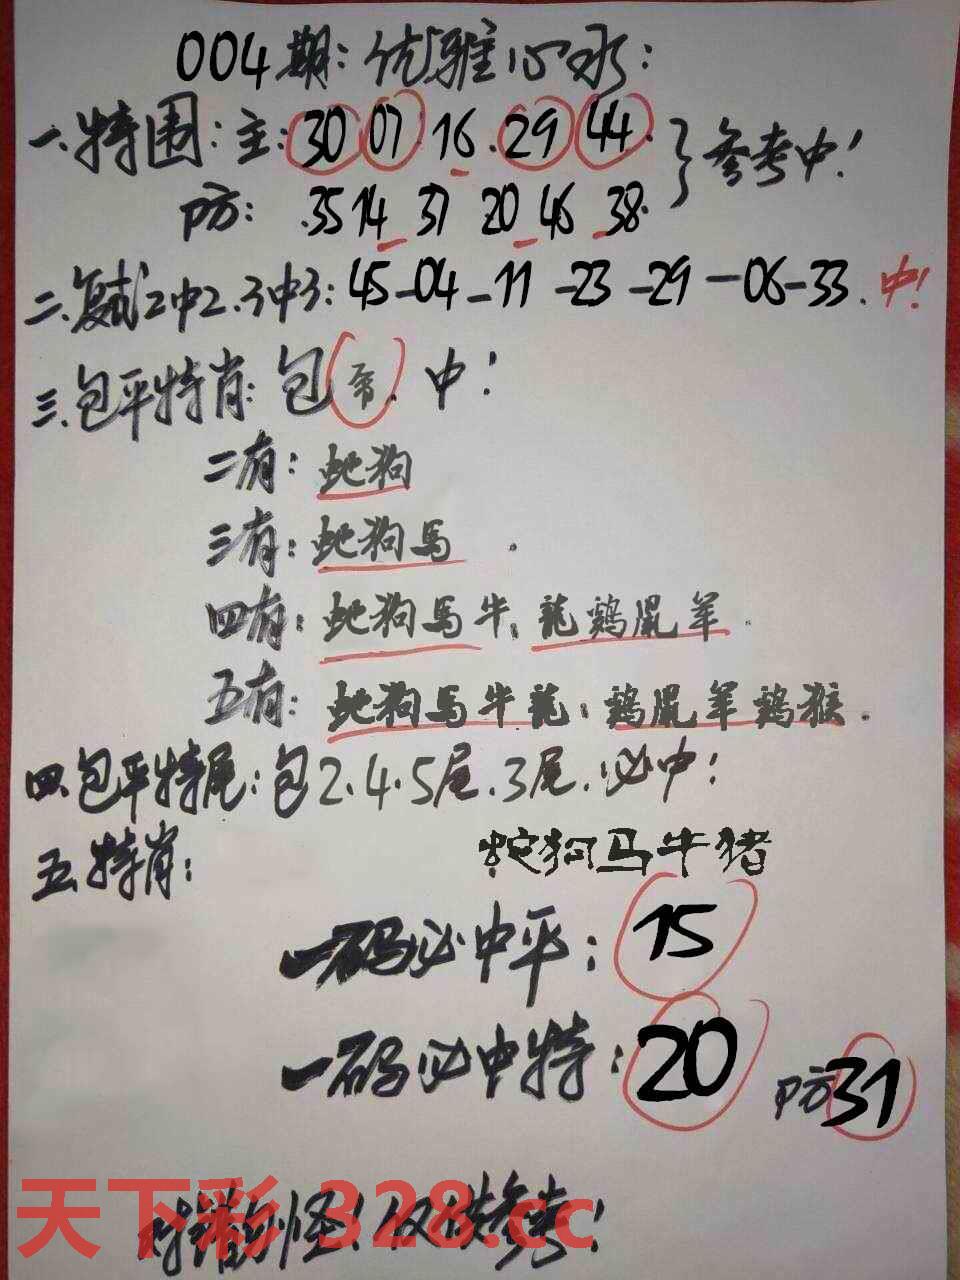 004期:优雅心水:
一.特围:主:30 07 16.29 44.}参考中!
防:.35 14 31 20 46 38.
二.复式2中2.3中3:45-04-11-23-29-06-33.中!
三.包平特肖:包.中!
二有:蛇狗
三有:蛇狗馬.
四有:蛇狗馬牛;龍鷄鼠羊.
五有:蛇狗馬牛龍:鷄鼠羊鷄猴.
四.包平特尾:包2.4.5尾.3尾.必中!
五.特肖:蛇狗马牛猪
一码必中平:15
一码必中特:20 防31
对错别怪!仅供参考!
天下彩 328.cc